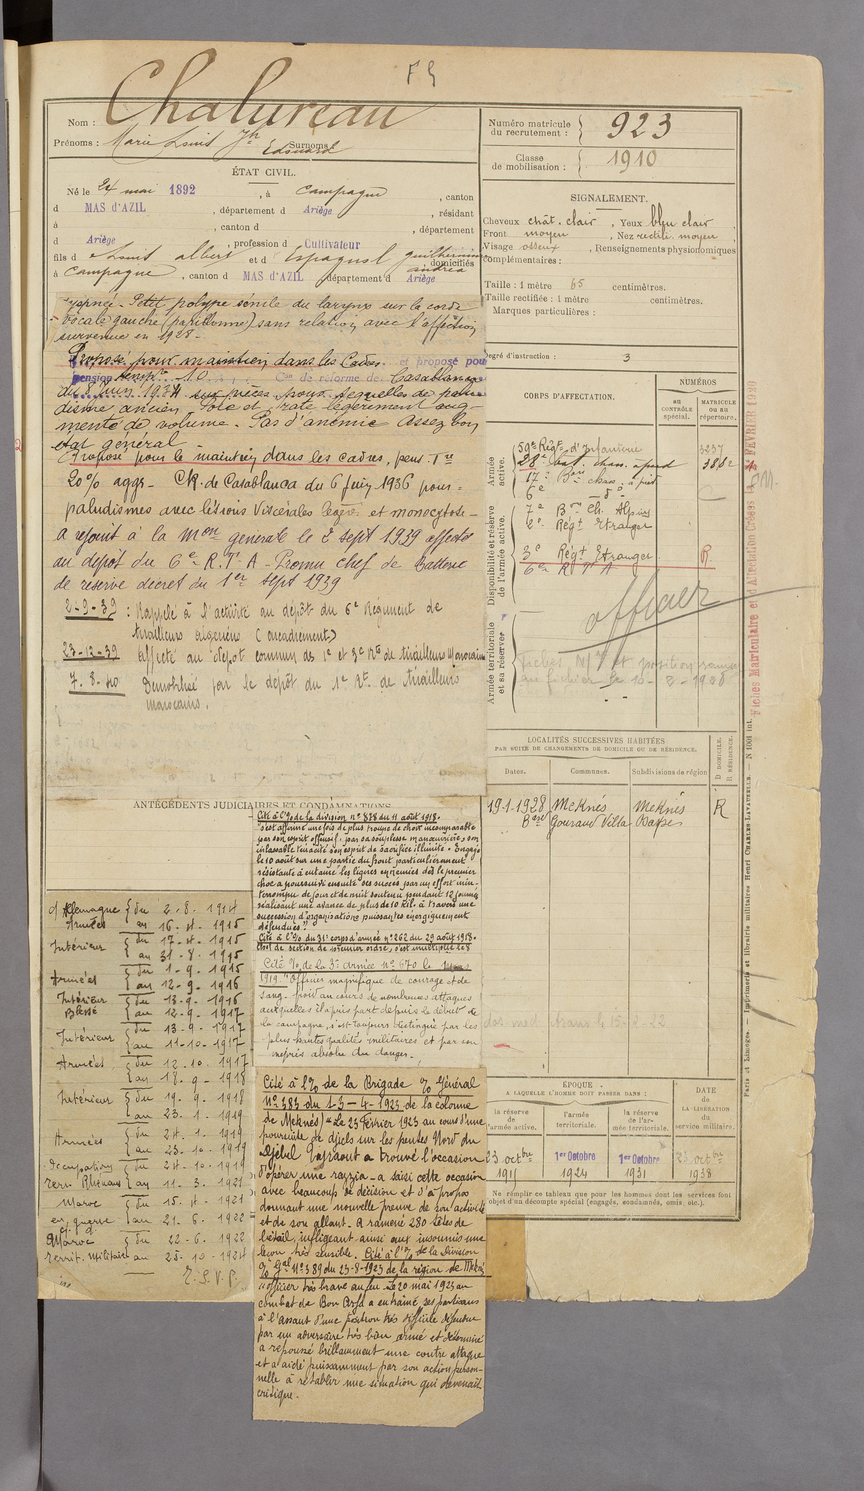 F 9
Nom : Chalureau
Prénoms : Marie Louis Jh Edouard
Surnoms :
ÉTAT CIVIL.
Né le 24 mai 1892, à Campagne, canton
d MAS d'AZIL, département d Ariège, résidant
à , canton d , département
d Ariège, profession d Cultivateur
fils d Louis albert et d Espagnol guilhermine andréa domiciliés
à Campagne, canton d MAS d'AZIL département d Ariège
Petit polype senile du larynx sur la corde
vocale gauche (papillome) sans relation avec l'affection
survenue en 1928.
Proposé pour maintien dans les Cadres et proposé pour
pension 10 Con de réforme de Casablanca
du 8 juin 1934 sur pièces pour sequelles de palu
disme ancien Foie et rate légèrement aug-
menté de volume. Pas d'anémie Assez bon
état général
Proposé pour le maintien dans les cadres, pens. Tre
20% aggr. CR. de Casablanca du 6 juin 1936 pour
paludismes avec lésions viscérales et monocytose
a rejoint à la Mon generale le 2 sept 1939 affecté
au dépôt du 6e R.T.A - Promu chef de Batterie
de réserve décret du 1er sept 1939
2-9-39 : Rappelé à l'activité au dépôt du 6e Régiment de
tirailleurs algériens (encadrement)
23-12-39 Affecté au dépôt commun des 1e et 3e Rts de tirailleurs Marocains
7. 8. 40 Demobilisé par le dépôt du 1e Rt. de tirailleurs
marocains.
ANTÉCÉDENTS JUDICIAIRES ET CONDAMNATIONS
Cité à l'O/ de la division n° 878 du 11 août 1918.
"s'est affirmé une fois de plus troupe de choix incomparable
par son esprit offensif, par sa souplesse manœuvrière, son
inlassable ténacité son esprit de sacrifice illimité. Engagé
le 10 août sur une partie du front particulièrement
résistante a enlevé les lignes ennemies dès le premier
choc a poursuivi ensuite ses succès par un effort inin-
terrompu de jour et de nuit soutenu pendant 12 jours
réalisant une avance de plus de 10 Kil. à travers une
succession d'organisations puissantes énergiquement
défendues"
Cité à l'O/ du 31e corps d'armée n° 262 du 29 août 1918.
Chef de section de premier ordre, s'est
Cité O/ de la 3e Armée n° 670 le
1919. "Officier magnifique de courage et de
sang-froid au cours de nombreuses attaques
auxquelles il a pris part depuis le début de
la campagne, s'est toujours distingué par les
plus hautes qualités militaires et par son
mépris absolu du danger.
Cité à l'O/ de la Brigade O/ Général
N° 383 du 13-4-1923 de la colonne
de Meknès) "Le 23 Février 1923 au cours d'une
poursuite de djichs sur les pentes Nord du
Djebel a trouvé l'occasion
d'opérer une razzia - a saisi cette occasion
avec beaucoup de décision et d'à propos
donnant une nouvelle preuve de son activité
et de son allant. A ramené 280 têtes de
bétail, infligeant ainsi aux insoumis une
leçon très sensible. Cité à l'O/ de la Division
O/ Gal N° 389 du 23-8-1923 de la région de Meknès
"officier très brave au feu. Le 20 mai 1923 au
combat de Bou Arfa a entraîné ses partisans
à l'assaut d'une position très difficile défendue
par un adversaire très bien armé et déterminé
a repoussé brillamment une contre attaque
et a aidé puissamment par son action person-
nelle à rétablir une situation qui devenait
critique.
d'Allemagne
Armées { du 2. 8. 1914
au 16. 4. 1915
Intérieur { du 17. 4. 1915
au 31. 8. 1915
Armées { du 1. 9. 1915
au 12. 9. 1916
Intérieur Blessé { du 13. 9. 1916
au 12. 9. 1917
Intérieur { du 13. 9. 1917
au 11. 10. 1917
Armées { du 12. 10. 1917
au 18. 9. 1918
Intérieur { du 19. 9. 1918
au 23. 1. 1919
Armées { du 24. 1. 1919
au 23. 10. 1919
Occupation { du 24. 10. 1919
Terr. Rhénans au 11. 3. 1921
Maroc { du 15. 4. 1921
en guerre au 21. 6. 1922
Maroc { du 22. 6. 1922
territ. Militaire au 25. 10. 1924
T. S. V. P.
Numéro matricule du recrutement : 923
Classe de mobilisation : 1910
SIGNALEMENT.
Cheveux chât. clair, Yeux bleu clair
Front moyen, Nez rectil. moyen
Visage osseux, Renseignements physionomiques
complémentaires :
Taille : 1 mètre 65 centimètres.
Taille rectifiée : 1 mètre centimètres.
Marques particulières :
Degré d'instruction : 3
CORPS D'AFFECTATION.
NUMÉROS
au CONTRÔLE spécial.
MATRICULE ou au répertoire.
Armée active.
59e Régt d'Infanterie 3237
28e Bat. chas. à pied
17e Bon chas. à pied
6e - do -
Disponibilité et réserve de l'armée active.
7e Bon Ch. Alpins
2e Régt Etranger
3e Régt Etranger R
6e R. T. A
officier
Armée territoriale et sa réserve
Fiches Mle et position
au fichier le 10-2-1928
LOCALITÉS SUCCESSIVES HABITÉES
PAR SUITE DE CHANGEMENTS DE DOMICILE OU DE RÉSIDENCE.
Dates. Communes. Subdivisions de région D. DOMICILE. R. RÉSIDENCE.
19.1.1928 Meknès Meknès R
Gouraud Villa
ÉPOQUE
A LAQUELLE L'HOMME DOIT PASSER DANS :
la réserve de l'armée active. l'armée territoriale. la réserve de l'armée territoriale.
DATE de LA LIBÉRATION du service militaire.
23 octbre 1915
1er Octobre 1924
1er Octobre 1931
23 octbre 1938
Ne remplir ce tableau que pour les hommes dont les services font
objet d'un décompte spécial (engagés, condamnés, omis, etc.).
Paris et Limoges. — Imprimerie et librairie militaires Henri CHARLES-LAVAUZELLE. — N° 1001 int.